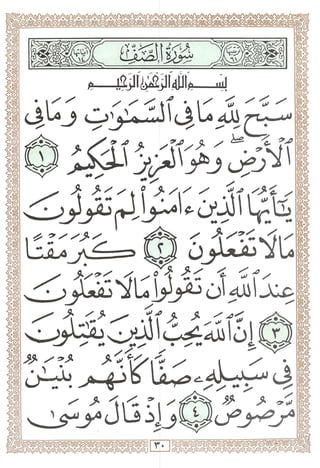 سُورَةُ الصَّفِّ
بِسْمِ اللَّهِ الرَّحْمَٰنِ الرَّحِيمِ
سَبَّحَ لِلَّهِ مَا فِي السَّمَٰوَٰتِ وَمَا فِي
الْأَرْضِ ۖ وَهُوَ الْعَزِيزُ الْحَكِيمُ ١
يَٰٓأَيُّهَا الَّذِينَ ءَامَنُوا لِمَ تَقُولُونَ
مَا لَا تَفْعَلُونَ ٢ كَبُرَ مَقْتًا
عِندَ اللَّهِ أَن تَقُولُوا مَا لَا تَفْعَلُونَ
٣ إِنَّ اللَّهَ يُحِبُّ الَّذِينَ يُقَٰتِلُونَ
فِي سَبِيلِهِۦ صَفًّا كَأَنَّهُم بُنْيَٰنٌ
مَّرْصُوصٌ ٤ وَإِذْ قَالَ مُوسَىٰ
٣٠